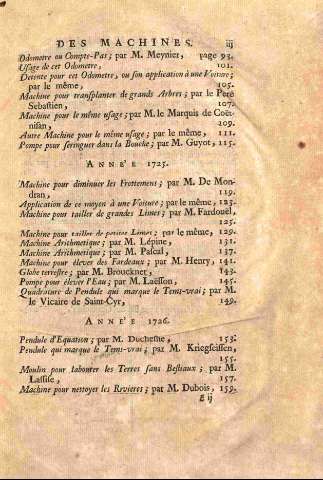 DES MACHINES. iij
Odometre ou Compte-Pas; par M. Meynier, page 93.
Usage de cet Odometre, 101.
Detente pour cet Odometre, ou son application à une Voiture;
par le même, 105.
Machine pour transplanter de grands Arbres; par le Pere
Sebastien, 107.
Machine pour le même usage; par M. le Marquis de Coët-
nisan, 109.
Autre Machine pour le même usage; par le même, 111.
Pompe pour seringuer dans la Bouche; par M. Guyot, 115.
ANNÉ'E 1725.
Machine pour diminuer les Frottemens; par M. De Mon-
dran, 119.
Application de ce moyen à une Voiture; par le même, 123.
Machine pour tailler de grandes Limes; par M. Fardoüel,
125.
Machine pour tailler de petites Limes; par le même, 129.
Machine Arithmetique; par M. Lépine, 131.
Machine Arithmetique; par M. Pascal, 137.
Machine pour élever des Fardeaux; par M. Henry, 141.
Globe terrestre; par M. Broucknet, 143.
Pompe pour élever l'Eau; par M. Laësson, 145.
Quadrature de Pendule qui marque le Tems-vrai; par M.
le Vicaire de Saint-Cyr, 149.
ANNÉ'E 1726.
Pendule d'Equation; par M. Duchesne, 153.
Pendule qui marque le Tems-vrai; par M. Kriegseissen,
155.
Moulin pour labourer les Terres sans Bestiaux; par M.
Lassise, 157.
Machine pour nettoyer les Rivieres; par M. Dubois, 159.
E ij